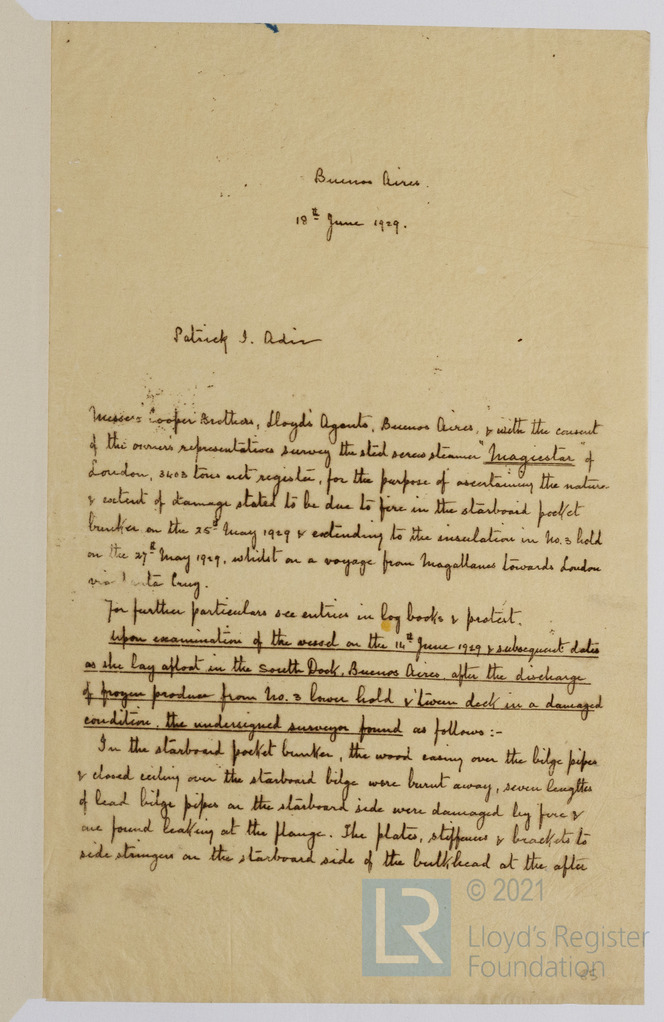 Buenos Aires.
18th June 1929.
Patrick I. Adie
Messrs Cooper Brothers, Lloyd's Agents, Buenos Aires, & with the consent
of the owner's representatives survey the steel screw steamer "Magicstar" of
London, 3403 tons net register, for the purpose of ascertaining the nature
& extent of damage stated to be due to fire in the starboard pocket
bunker on the 25th May 1929 & extending to the insulation in No. 3 hold
on the 27th May 1929, whilst on a voyage from Magallanes towards London
via Cruz.
For further particulars see entries in log books & protest.
Upon examination of the vessel on the 14th June 1929 & subsequent dates
as she lay afloat in the South Dock, Buenos Aires, after the discharge
of frozen produce from No. 3 lower hold & 'tween deck in a damaged
condition, the undersigned surveyor found as follows:-
In the starboard pocket bunker, the wood casing over the bilge pipes
& closed ceiling over the starboard bilge were burnt away, seven lengths
of lead bilge pipes on the starboard side were damaged by fire &
one found leaking at the flange. The plates, stiffeners & brackets to
side stringers on the starboard side of the bulkhead at the after
LR
© 2021
Lloyd's Register
Foundation